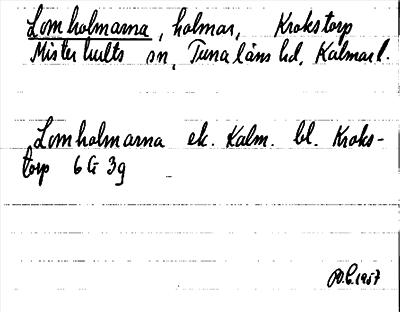 Lomholmarna, holmar, Krokstorp
Misterhults sn, Tunaläns hd, Kalmar l.
Lomholmarna ek. Kalm. bl. Kroks-
torp 6 G 3g
1957